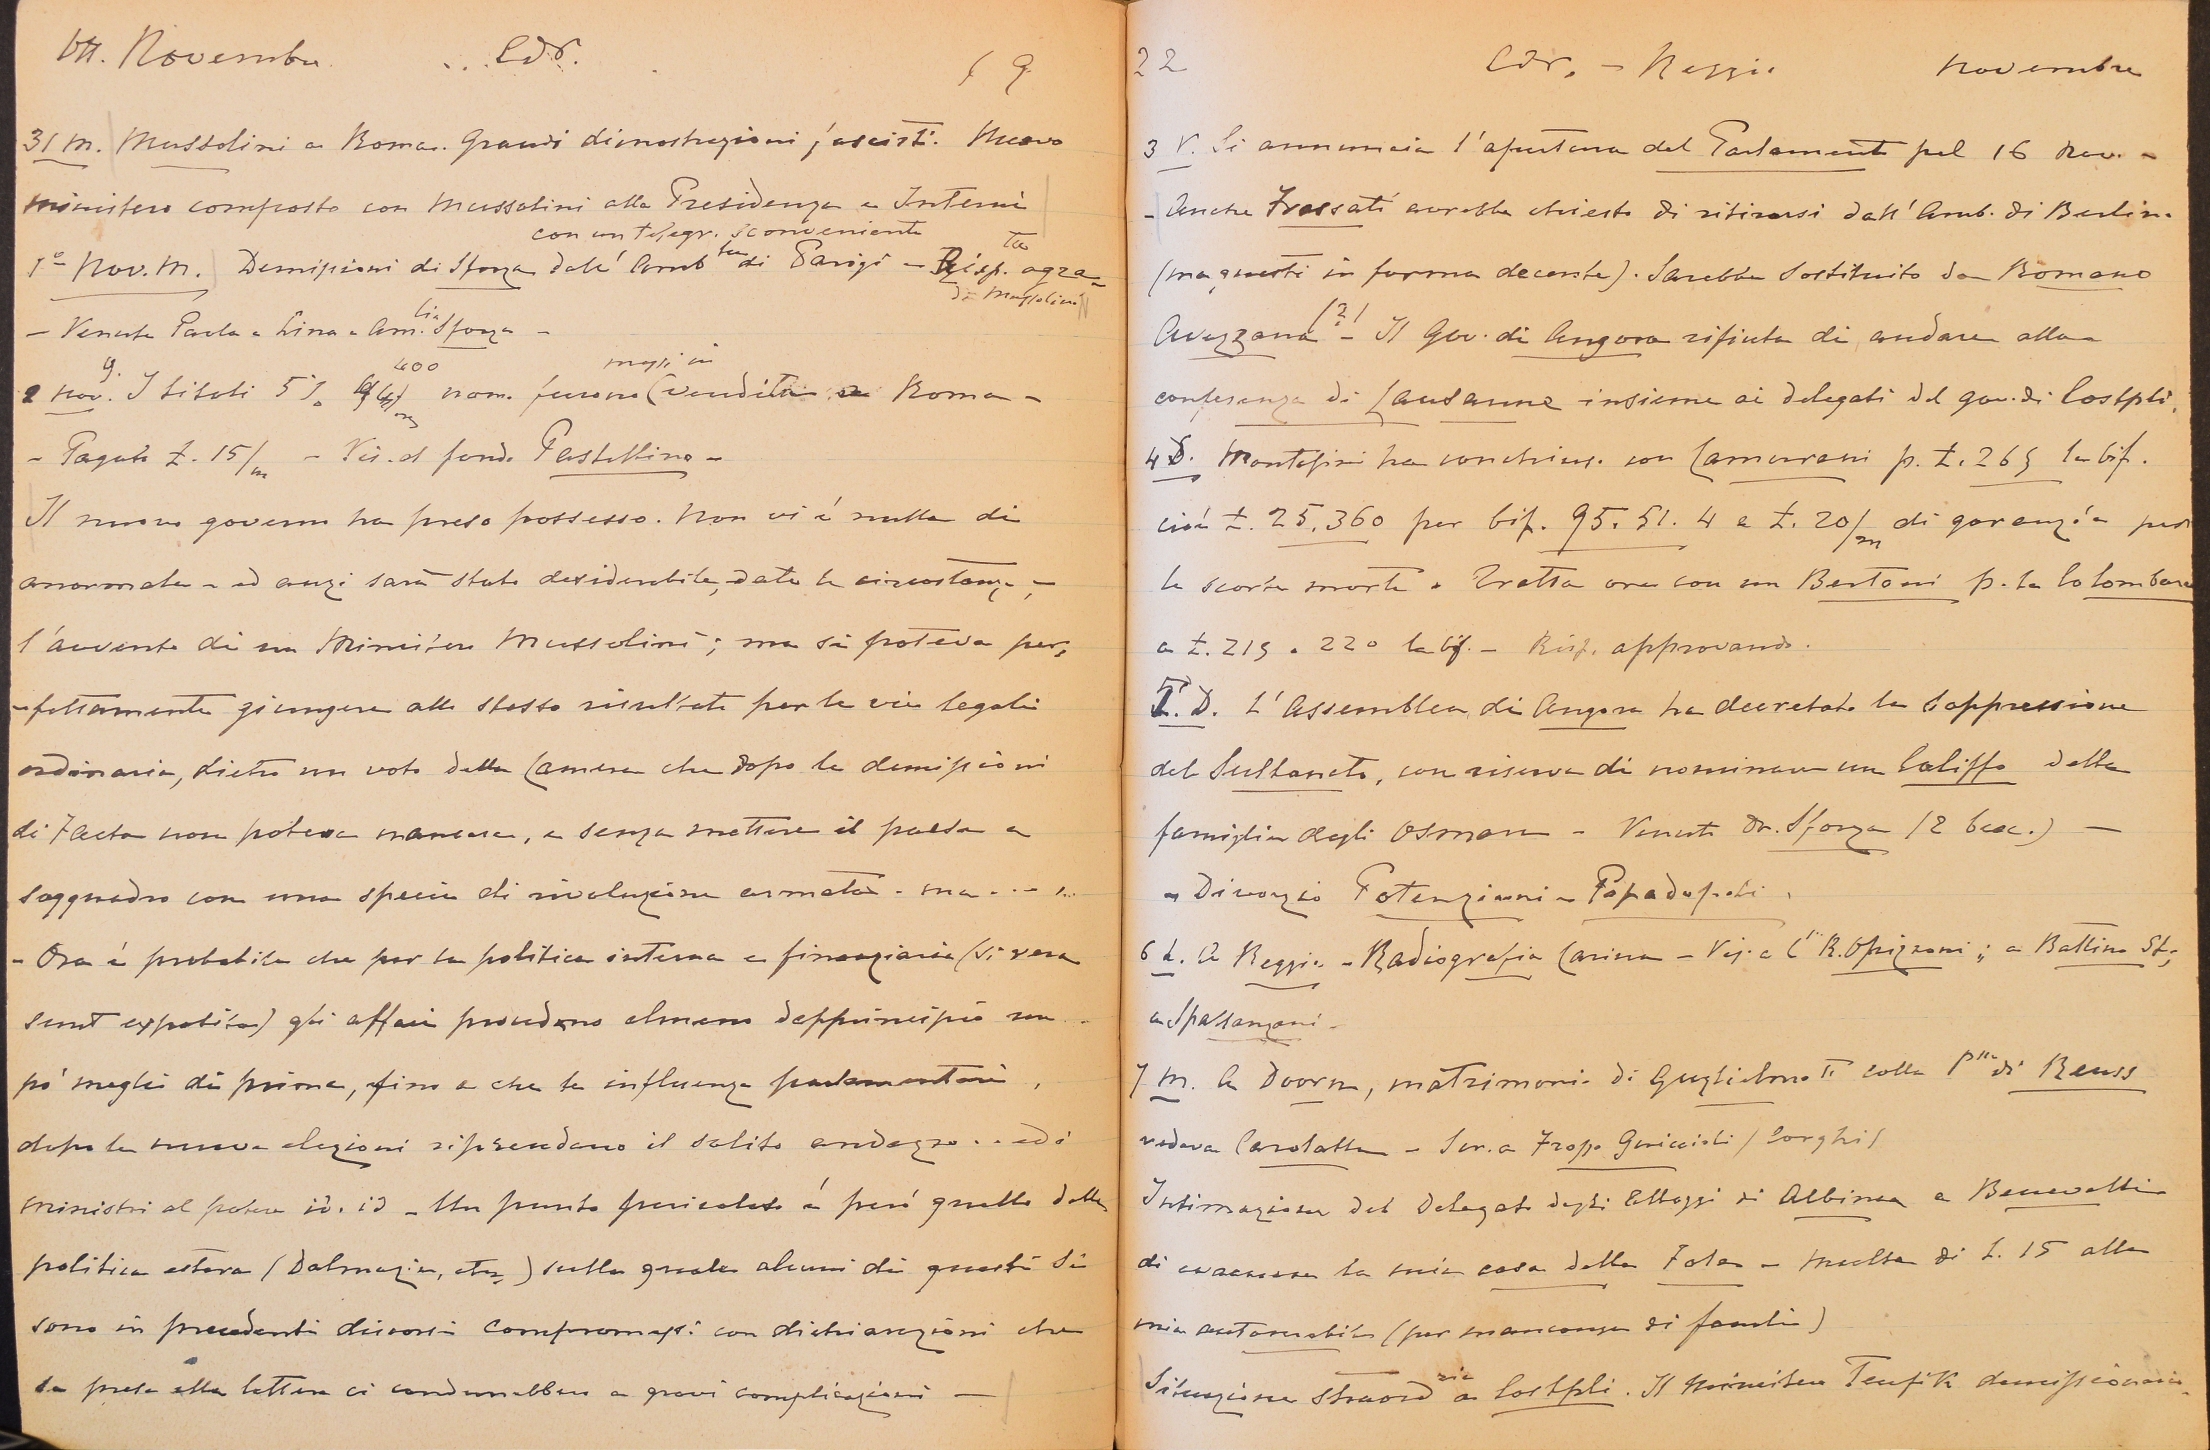 Ott. Novembre ... Cdr. 19
31 M. Mussolini a Roma. Grandi dimostrazioni fasciste. Nuovo
ministero composto con Mussolini alla Presidenza e Interni
con un telegr. sconveniente
1º Nov. M. Demissioni di Sforza dall'Amb.ta di Parigi - Risp. agra
di Mussolini
- Venute Paola e Lina e Am. Sforza -
400 messi in
2 Nov. G. I titoli 5% nom. furono (vendita a Roma -
- Pagato £. 15/m - Vis. al fondo Pastellino -
Il nuovo governo ha preso possesso. Non vi è nulla di
anormale - ed anzi sarà stato desiderabile, date le circostanze, -
l'avvento di un Ministero Mussolini; ma si poteva per-
-fettamente giungere allo stesso risultato per le vie legali
ordinarie, dietro un voto della Camera che dopo le demissioni
di Facta non poteva mancare, e senza mettere il paese a
soqquadro con una specie di rivoluzione armata. ma....
- Ora è probabile che per la politica interna e finanziaria (si vera
sunt exposita) gli affari procedano almeno dapprincipio un
po' meglio di prima, fino a che le influenze parlamentari,
dopo le nuove elezioni riprendano il solito andazzo.. ed i
ministri al potere id. id - Un punto pericoloso è però quello della
politica estera (Dalmazia, etc.) sulla quale alcuni di questi si
sono in precedenti discorsi compromessi con dichiarazioni che
se prese alla lettera ci condurrebbero a gravi complicazioni -
22 Cdr. - Reggio Novembre
3 V. Si annuncia l'apertura del Parlamento pel 16 Nov. -
- Anche Frassati avrebbe chiesto di ritirarsi dall'Amb. di Berlino
(ma questi in forma decorosa). Sarebbe sostituito da Romano
Avezzana (?) - Il Gov. di Angora rifiuta di andare alla
conferenza di Lausanne insieme ai delegati del gov. di Costpli.
4 S. Montefini ha conchiuso con Camurani p. £. 265 la bif.
cioè £. 25.360 per bif. 95. 51. 4 e £. 20/m di garanzia per
le scorte morte. Tratta ora con un Bertoni p. la Colombara
a £. 215 a 220 la bif. - Risp. approvando.
5. D. L'Assemblea di Angora ha decretato la soppressione
del Sultanato, con riserva di nominare un Califfo della
famiglia degli Osman - Venuto Dr. Sforza (2 bac.) -
- Divorzio Potenziani - Papadopoli.
6 L. A Reggio - Radiografia Carina - Vis. a C. R. Spizzoni; a Battino St;
a Spallanzani -
7 M. A Doorn, matrimonio di Guglielmo II colla P.ssa di Reuss
vedova Carolath - Scr. a Frosp Guiccioli (Borghi)
Intimazione del Delegato degli Alloggi di Albinea a Benevelli
di evacuare la mia casa della Fola - Multa di £. 15 alla
mia automobile (per mancanza di fanali)
Situazione straord.ria a Costpli. Il Ministero Teufik demissionario.